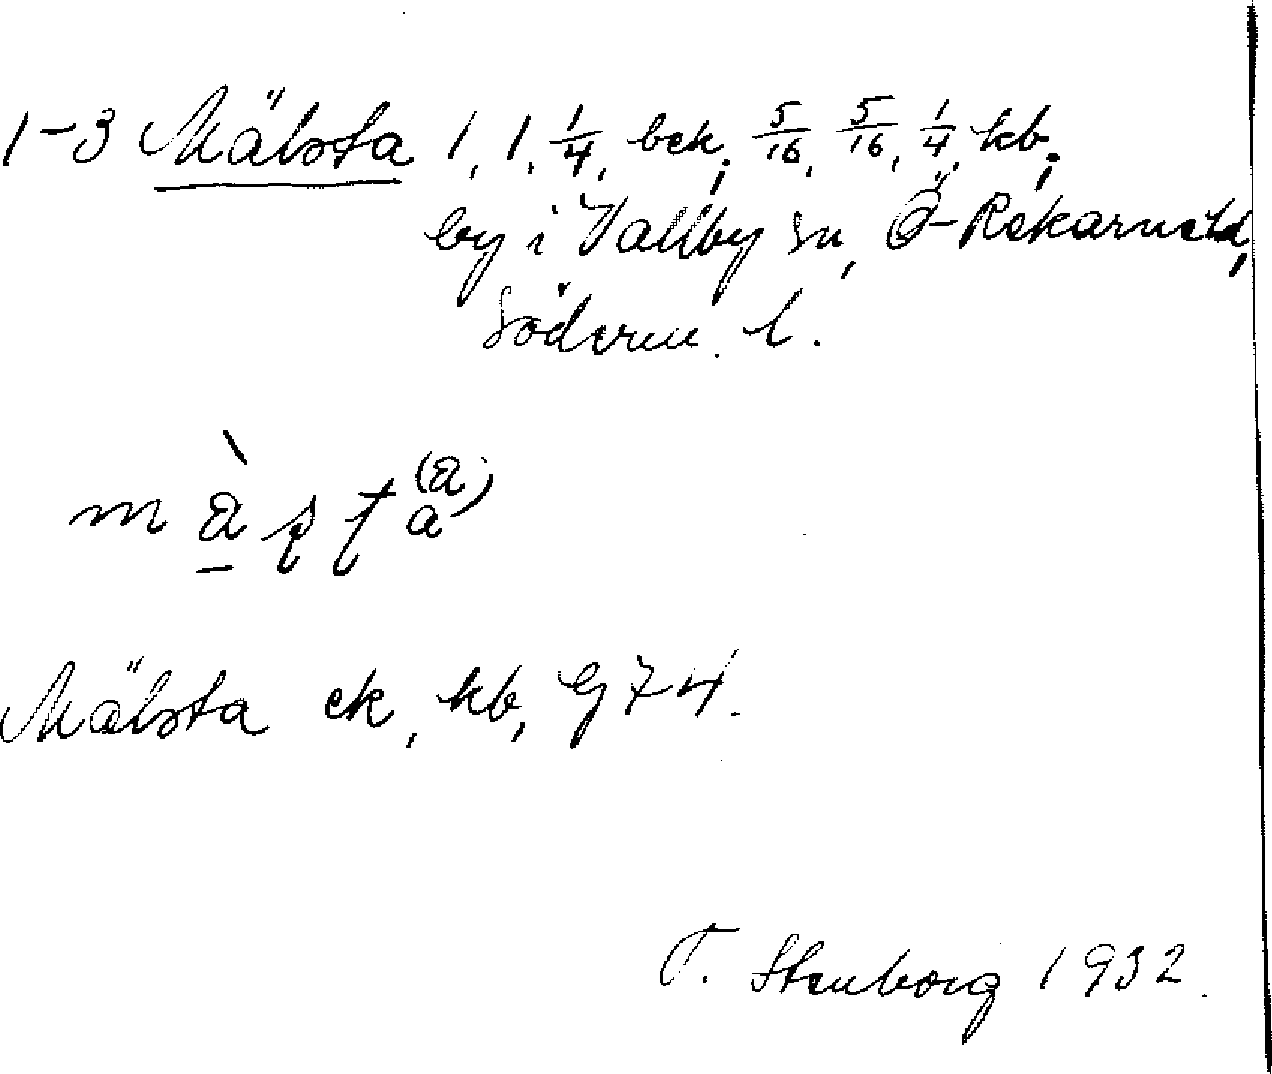 1-3 Mälsta 1, 1, 1/4, bek; 5/16, 5/16, 1/4, kb;
by i Vallby sn, Ö-Rekarne hd,
Söderm. l.
Mälsta ek, kb, G 74.
T. Stenborg 1932.